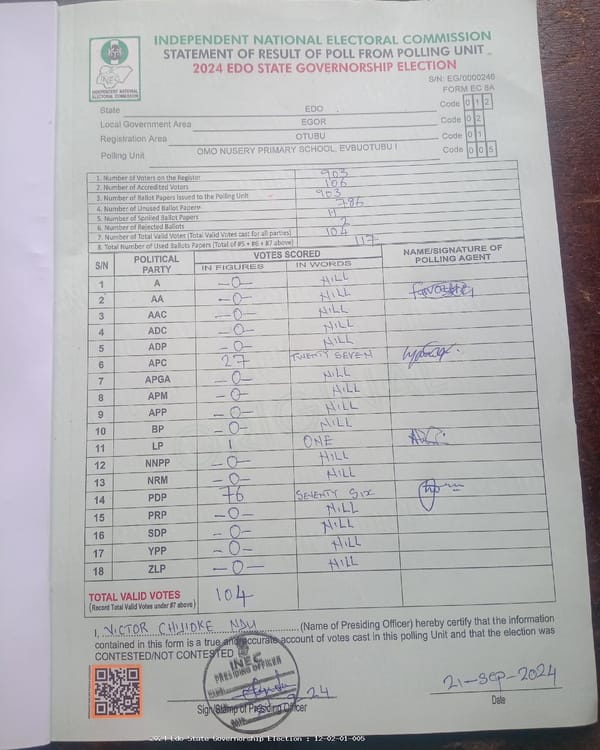 INDEPENDENT NATIONAL ELECTORAL COMMISSION
STATEMENT OF RESULT OF POLL FROM POLLING UNIT
2024 EDO STATE GOVERNORSHIP ELECTION
INEC
INDEPENDENT NATIONAL
ELECTORAL COMMISSION
S/N: EG/0000246
FORM EC 8A
State EDO Code 0 1 2
Local Government Area EGOR Code 0 2
Registration Area OTUBU Code 0 1
Polling Unit OMO NUSERY PRIMARY SCHOOL, EVBUOTUBU I Code 0 0 5
1. Number of Voters on the Register 903
2. Number of Accredited Voters 106
3. Number of Ballot Papers issued to the Polling Unit 903
4. Number of Unused Ballot Papers 786
5. Number of Spoiled Ballot Papers 11
6. Number of Rejected Ballots 2
7. Number of Total Valid Votes (Total Valid Votes cast for all parties) 104
8. Total Number of Used Ballots Papers (Total of #5 + #6 + #7 above) 117
S/N POLITICAL PARTY VOTES SCORED NAME/SIGNATURE OF POLLING AGENT
IN FIGURES IN WORDS
1 A -0- NILL
2 AA -0- NILL
3 AAC -0- NILL
4 ADC -0- NILL
5 ADP -0- NILL
6 APC 27 TWENTY SEVEN
7 APGA -0- NILL
8 APM -0- NILL
9 APP -0- NILL
10 BP -0- NILL
11 LP 1 ONE
12 NNPP -0- NILL
13 NRM -0- NILL
14 PDP 76 SEVENTY SIX
15 PRP -0- NILL
16 SDP -0- NILL
17 YPP -0- NILL
18 ZLP -0- NILL
TOTAL VALID VOTES 104
(Record Total Valid Votes under #7 above)
I, VICTOR CHIJIOKE NDU (Name of Presiding Officer) hereby certify that the information
contained in this form is a true and accurate account of votes cast in this polling Unit and that the election was
CONTESTED/NOT CONTESTED
INEC
PRESIDING OFFICER
21-SEP-2024
Sign/Stamp of Presiding Officer Date
2024 Edo State Governorship Election : 12-02-01-005